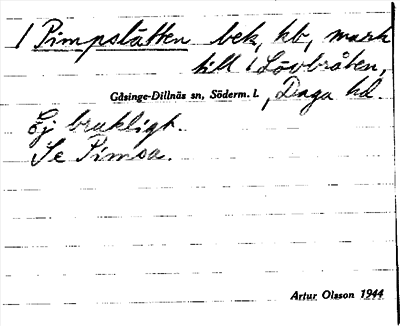 / Pimpslätten bek, hb, mark
till / Lövbråten,
Gåsinge-Dillnäs sn, Söderm. l. , Daga hd.
Ej brukligt.
Se Pimsa.
Artur Olsson 1944